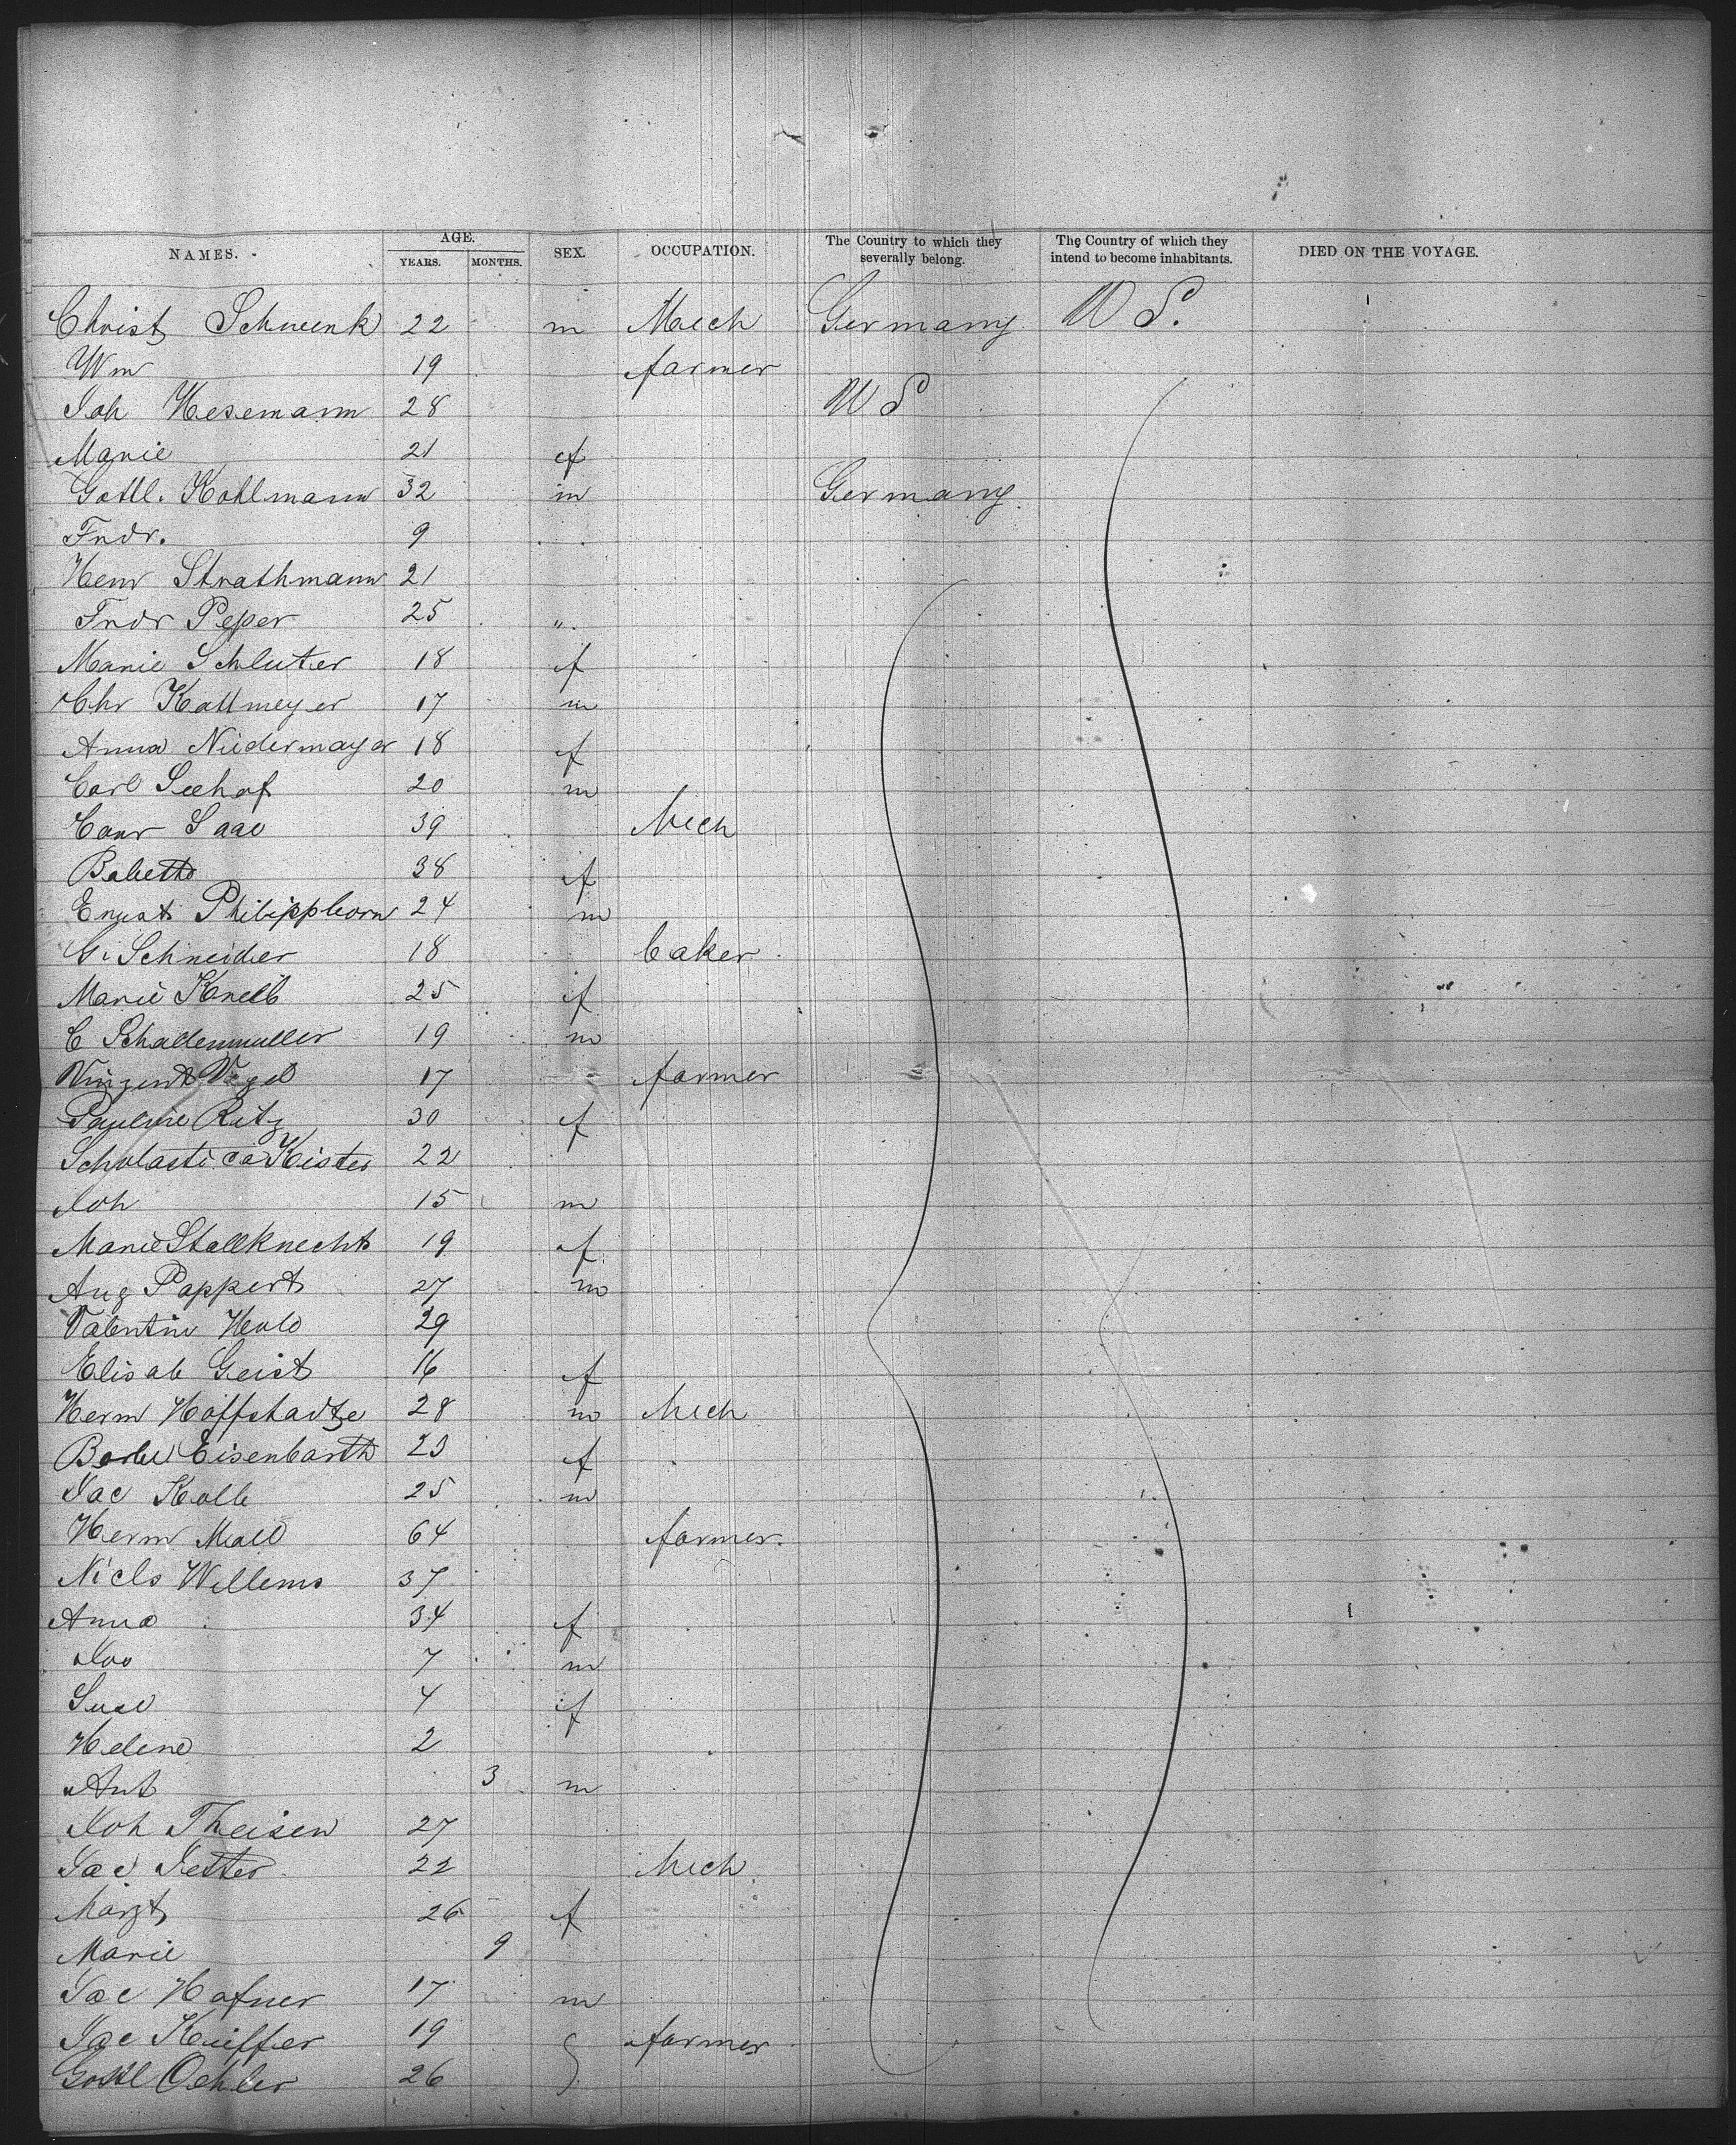 NAMES. AGE. YEARS. MONTHS. SEX. OCCUPATION. The Country to which they severally belong. The Country of which they intend to become inhabitants. DIED ON THE VOYAGE.
Christ Schwenk 22 m Mech Germany U S.
Wm 19 farmer
Joh Hesemann 28 U S
Marie 21 f
Gottl. Kohlmann 32 m Germany
Fndr. 9
Henr Strathmann 21
Fndr Peper 25 "
Marie Schluter 18 f
Chr Kattmeyer 17 m
Anna Niedermayer 18 f
Carl Seehof 20 m
Conr Saal 39 Mech
Babette 38 f
Ernst Philippborn 24 m
G. Schneider 18 baker
Marie Knelb 25 f
C Schallenmuller 19 m
Vinzent Vogel 17 farmer
Pauline Ritz 30 f
Scholastica Kister 22
Joh 15 m
Marie Stallknecht 19 f
Aug Pappert 27 m
Valentin Held 29
Elisab Geist 16 f
Herm Hoffstadte 28 m Mech
Barb Eisenbarth 23 f
Jac Kolb 25 m
Herm Mall 64 farmer.
Niels Willems 37
Anna 34 f
Jos 7 m
Susl 4 f
Helene 2
Ant 3 m
Joh Theisen 27
Jac Jetter 22 Mech
Margt 26 f
Marie 9
Jac Hafner 17 m
Jac Kieffer 19 farmer
Gottl Oehler 26